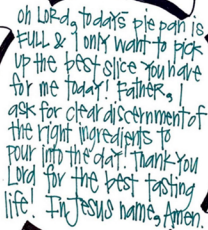 oh Lord, today's pie pan is
FULL & I only want to pick
up the best slice you have
for me today! Father, I
ask for clear discernment of
the right ingredients to
pour into the day! Thank you
Lord for the best tasting
life! In Jesus name, Amen.